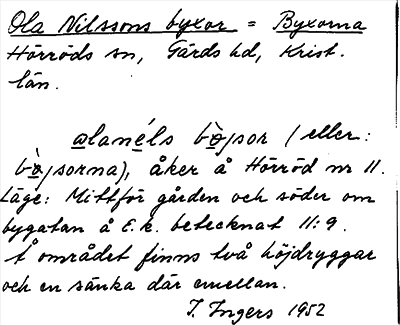 Ola Nilssons byxor = Byxorna
Hörröds sn, Gärds hd, Krist.
län.
alanéls bò̱jsor (eller:
bò̱jsorna), åker å Hörröd nr 11.
Läge: Mittför gården och söder om
bygatan å E.k. betecknat 11:9.
I området finns två höjdryggar
och en sänka där emellan.
I. Ingers 1952